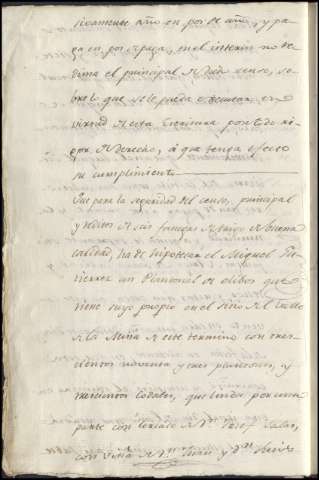 sivamente año en pos de año, y pa
ga en pos de paga, en el interin no re
dima el principal de dicho censo, so
bre lo que se le pueda executar en
virtud de esta Escritura por todo ri
gor de derecho, a que tenga efecto
su cumplimiento
Que para la seguridad del censo, principal
y reditos de seis fanegas de trigo de buena
calidad, ha de hipotecar el Miguel
un Plantonal de olibos que
tiene suyo propio en el sitio de el
de la Mina de este termino con tres
cientos noventa y tres plantones, y
trescientos Codales, que linda por una
parte con cercado de Dn. Josef Salas,
con viña de Dn. Juan y Dn.